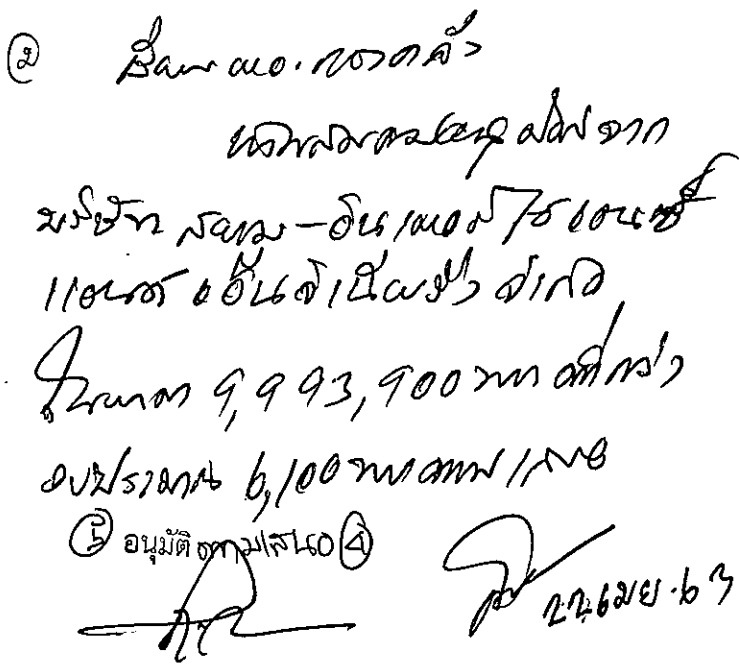 ② เรียน ผอ.กอวคลัง
เห็นสมควรอนุมัติจ้างจาก
บริษัท สยาม-อินเตอร์ไซเอนซ์
แอนด์ เอ็นจิเนียริ่ง จำกัด
ในราคา 9,993,900 บาท ต่ำกว่า
งบประมาณ 6,100 บาท ตามเสนอ
⑤ อนุมัติตามเสนอ ④
22 เมย. 63